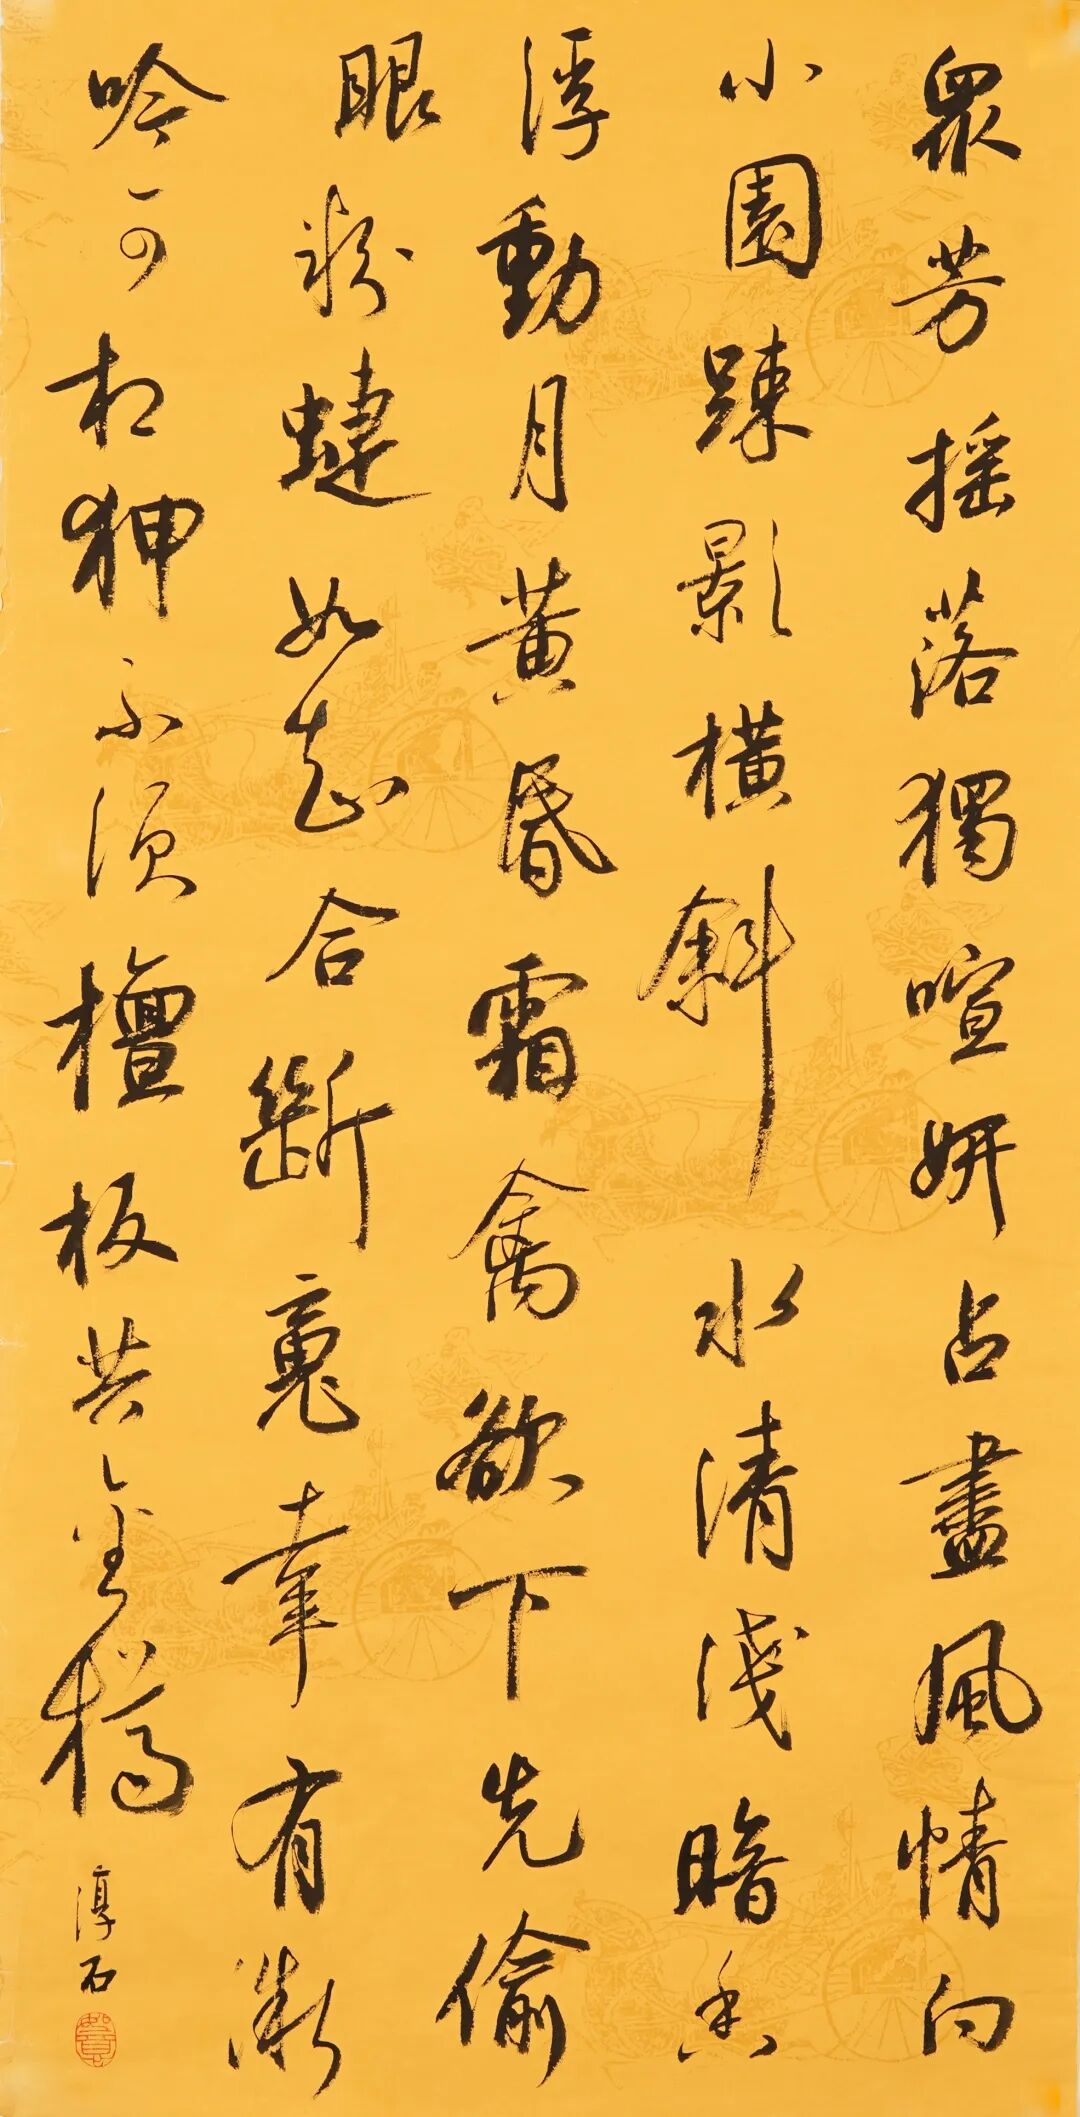 眾芳摇落獨喧妍占盡風情向
小園踈影橫斜水清淺暗香
浮動月黃昏霜禽欲下先偷
眼粉蜨如知合斷䰟幸有微
吟可相狎不須檀板共金樽
淳石